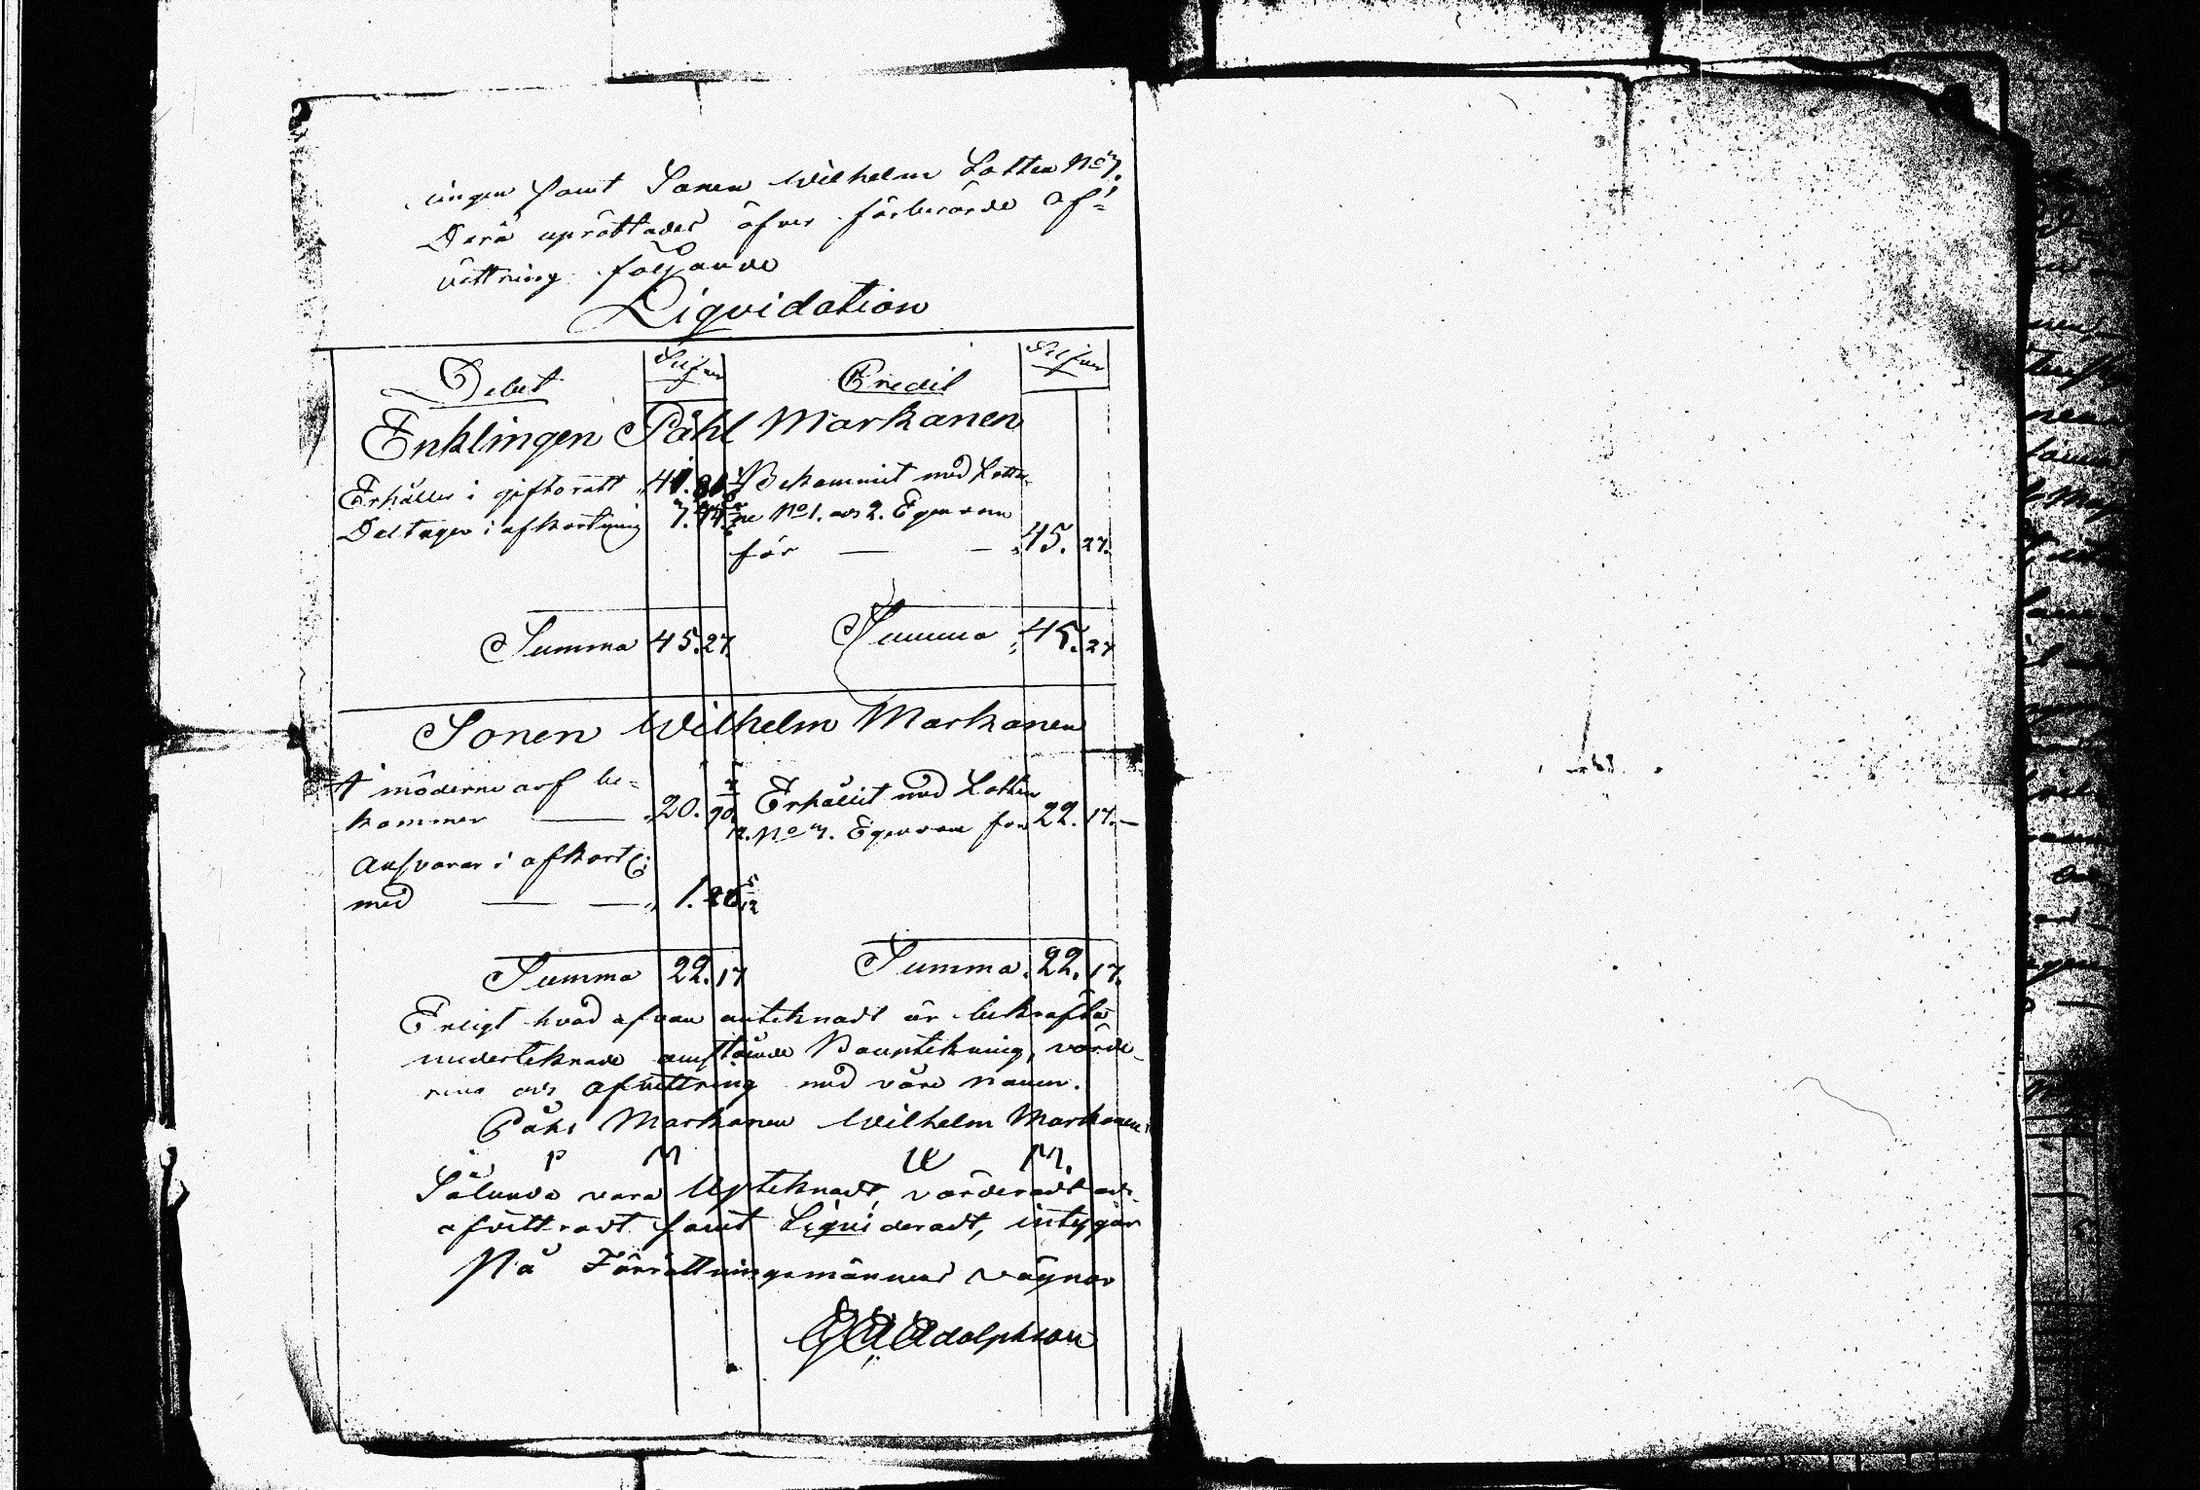 ingen samt Sonen Wilhelm Lotten No 3.
Derå uprättades öfver förberörde af-
vittring följande
Liqvidation
Debet Silfver Credit Silfver
Enklingen Påhl Markanen
Erhåller i giftorätt 41. Bekommit med Lotter-
Deltager i afkortning ne No 1. och 2. Egendom
för — — 45. 27.
Summa 45. 27. Summa 45. 27
Sonen Wilhelm Markanen
I möderne arf be-
kommer — 20. 90 Erhållit med Lotten
No 3. Egendom för 22. 17. —
Ansvarar i afkort:
med — — 1. 26 5/12
Summa 22. 17 Summa 22. 17.
Enligt hvad ofvan antecknadt är bekräfta
undertecknade omstående Bouptekning, värde-
ring och afvittring med våre namn.
Påhl Markanen Wilhelm Markanen
P M W M.
Sålunda vara Upteknadt, värderadt och
afvittradt samt Liqvideradt, intygar
På Förrättningsmännens vägnar
Adolphson